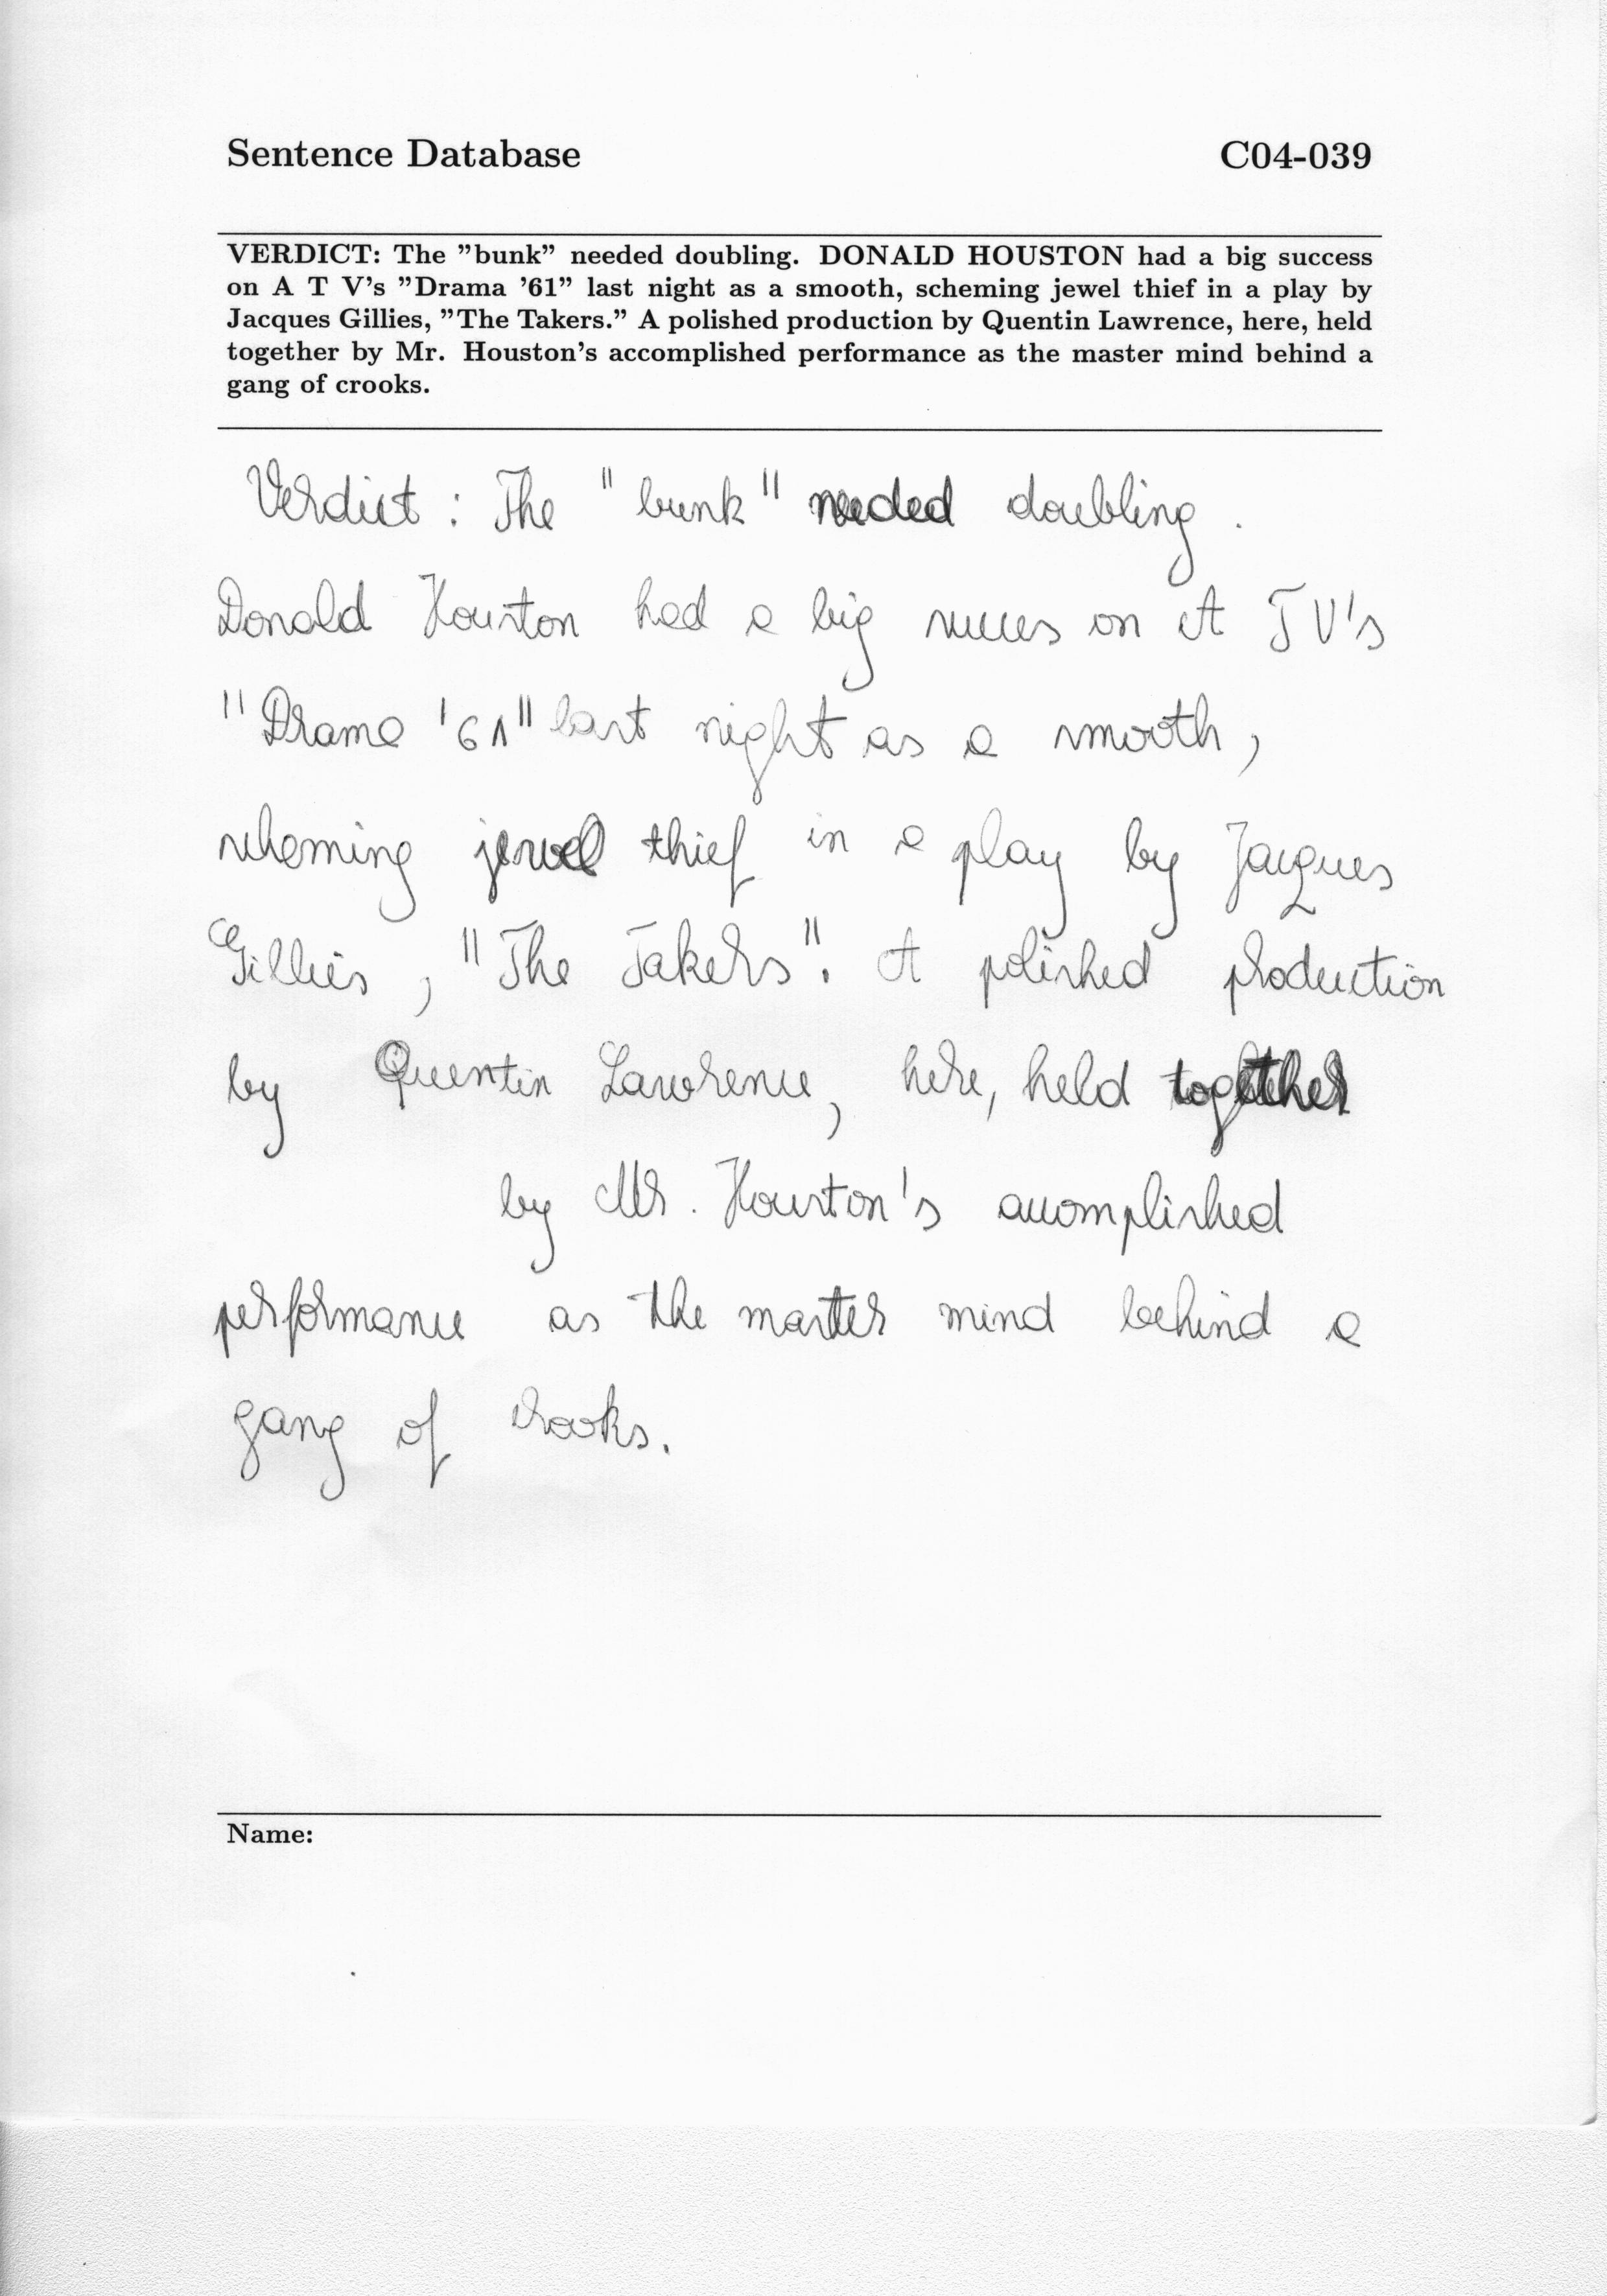 Sentence Database C04-039
VERDICT: The "bunk" needed doubling. DONALD HOUSTON had a big success
on A T V's "Drama '61" last night as a smooth, scheming jewel thief in a play by
Jacques Gillies, "The Takers." A polished production by Quentin Lawrence, here, held
together by Mr. Houston's accomplished performance as the master mind behind a
gang of crooks.
Verdict : The "bunk" needed doubling .
Donald Houston had a big success on A T V's
"Drama '61" last night as a smooth ,
scheming jewel thief in a play by Jacques
Gillies , "The Takers". A polished production
by Quentin Lawrence, here, held together
by Mr. Houston's accomplished
performance as the master mind behind a
gang of crooks.
Name: